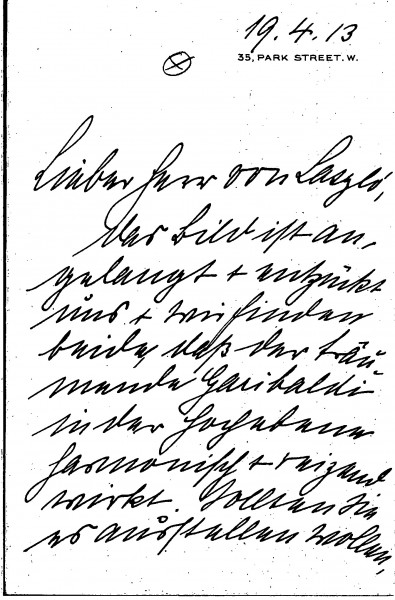 19.4.13
35, PARK STREET. W.
Lieber Herr von László,
das Bild ist an-
gelangt + entzückt
uns + wir finden
beide, daß der träu
mende Garibaldi
in der Hochebene
harmonisch + reizend
wirkt. Sollten Sie
es ausstellen wollen,